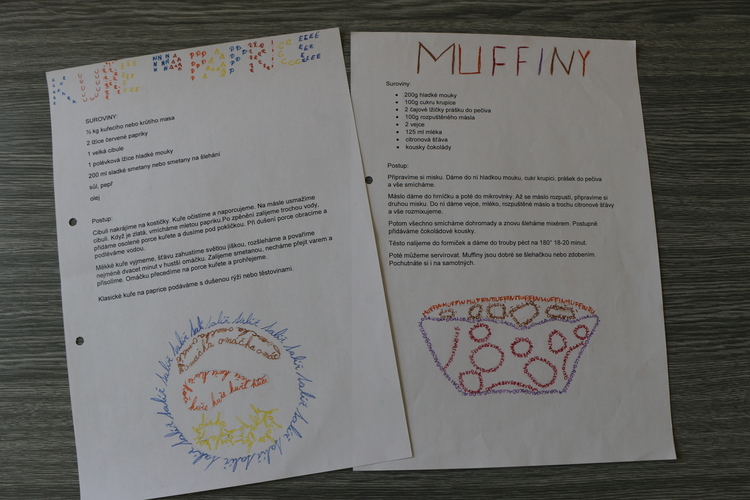 KUŘE NA PAPRICE
SUROVINY:
½ kg kuřecího nebo krůtího masa
2 lžíce červené papriky
1 velká cibule
1 polévková lžíce hladké mouky
200 ml sladké smetany nebo smetany na šlehání
sůl, pepř
olej
Postup:
Cibuli nakrájíme na kostičky. Kuře očistíme a naporcujeme. Na másle usmažíme
cibuli. Když je zlatá, vmícháme mletou papriku.Po zpěnění zalijeme trochou vody,
přidáme osolené porce kuřete a dusíme pod pokličkou. Při dušení porce obracíme a
podléváme vodou.
Měkké kuře vyjmeme, šťávu zahustíme světlou jíškou, rozšleháme a povaříme
nejméně dvacet minut v hustší omáčku. Zalijeme smetanou, necháme přejít varem a
přisolíme. Omáčku přecedíme na porce kuřete a prohřejeme.
Klasické kuře na paprice podáváme s dušenou rýží nebo těstovinami.
talíř talíř talíř talíř talíř talíř talíř
omáčka omáčka omáčka
kuře kuře kuře
kuře kuře kuře kuře
MUFFINY
Suroviny:
• 200g hladké mouky
• 100g cukru krupice
• 2 čajové lžičky prášku do pečiva
• 100g rozpuštěného másla
• 2 vejce
• 125 ml mléka
• citronová šťáva
• kousky čokolády
Postup:
Připravíme si misku. Dáme do ní hladkou mouku, cukr krupici, prášek do pečiva
a vše smícháme.
Máslo dáme do hrníčku a poté do mikrovlnky. Až se máslo rozpustí, připravíme si
druhou misku. Do ní dáme vejce, mléko, rozpuštěné máslo a trochu citronové šťávy
a vše rozmixujeme.
Potom všechno smícháme dohromady a znovu šleháme mixérem. Postupně
přidáváme čokoládové kousky.
Těsto nalijeme do formiček a dáme do trouby péct na 180° 18-20 minut.
Poté můžeme servírovat. Muffiny jsou dobré se šlehačkou nebo zdobením.
Pochutnáte si i na samotných.
MUFFIN MUFFIN MUFFIN